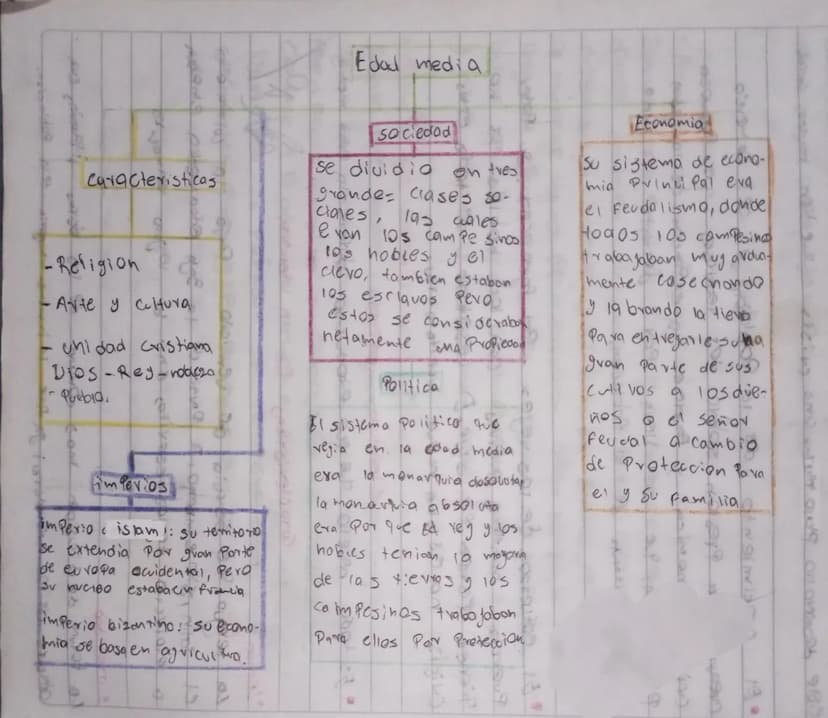 Edad media
caracteristicas
- Religion
- Arte y cultura
- unidad cristiana
Dios - Rey - nobleza
- Pueblo.
imperios
imperio islam: su territorio
se extendia por gran parte
de europa occidental, pero
su nucleo estaba en francia
imperio bizantino: su econo-
mia se basa en agricultura.
sociedad
se dividio en tres
grandes clases so-
ciales, las cuales
eran los campesinos
los nobles y el
clero, tambien estaban
los esclavos pero
estos se consideraban
netamente una propiedad
Politica
El sistema politico que
regia en la edad media
era la monarquia absoluta,
la monarquia absoluta
era por que el rey y los
nobles tenian la mayoria
de las tierras y los
campesinos trabajaban
para ellos por proteccion
Economia
su sistema de econo-
mia principal era
el feudalismo, donde
todos los campesinos
trabajaban muy ardua-
mente cosechando
y labrando la tierra
para entregarle una
gran parte de sus
cultivos a los due-
ños o el señor
feudal a cambio
de proteccion para
el y su familia